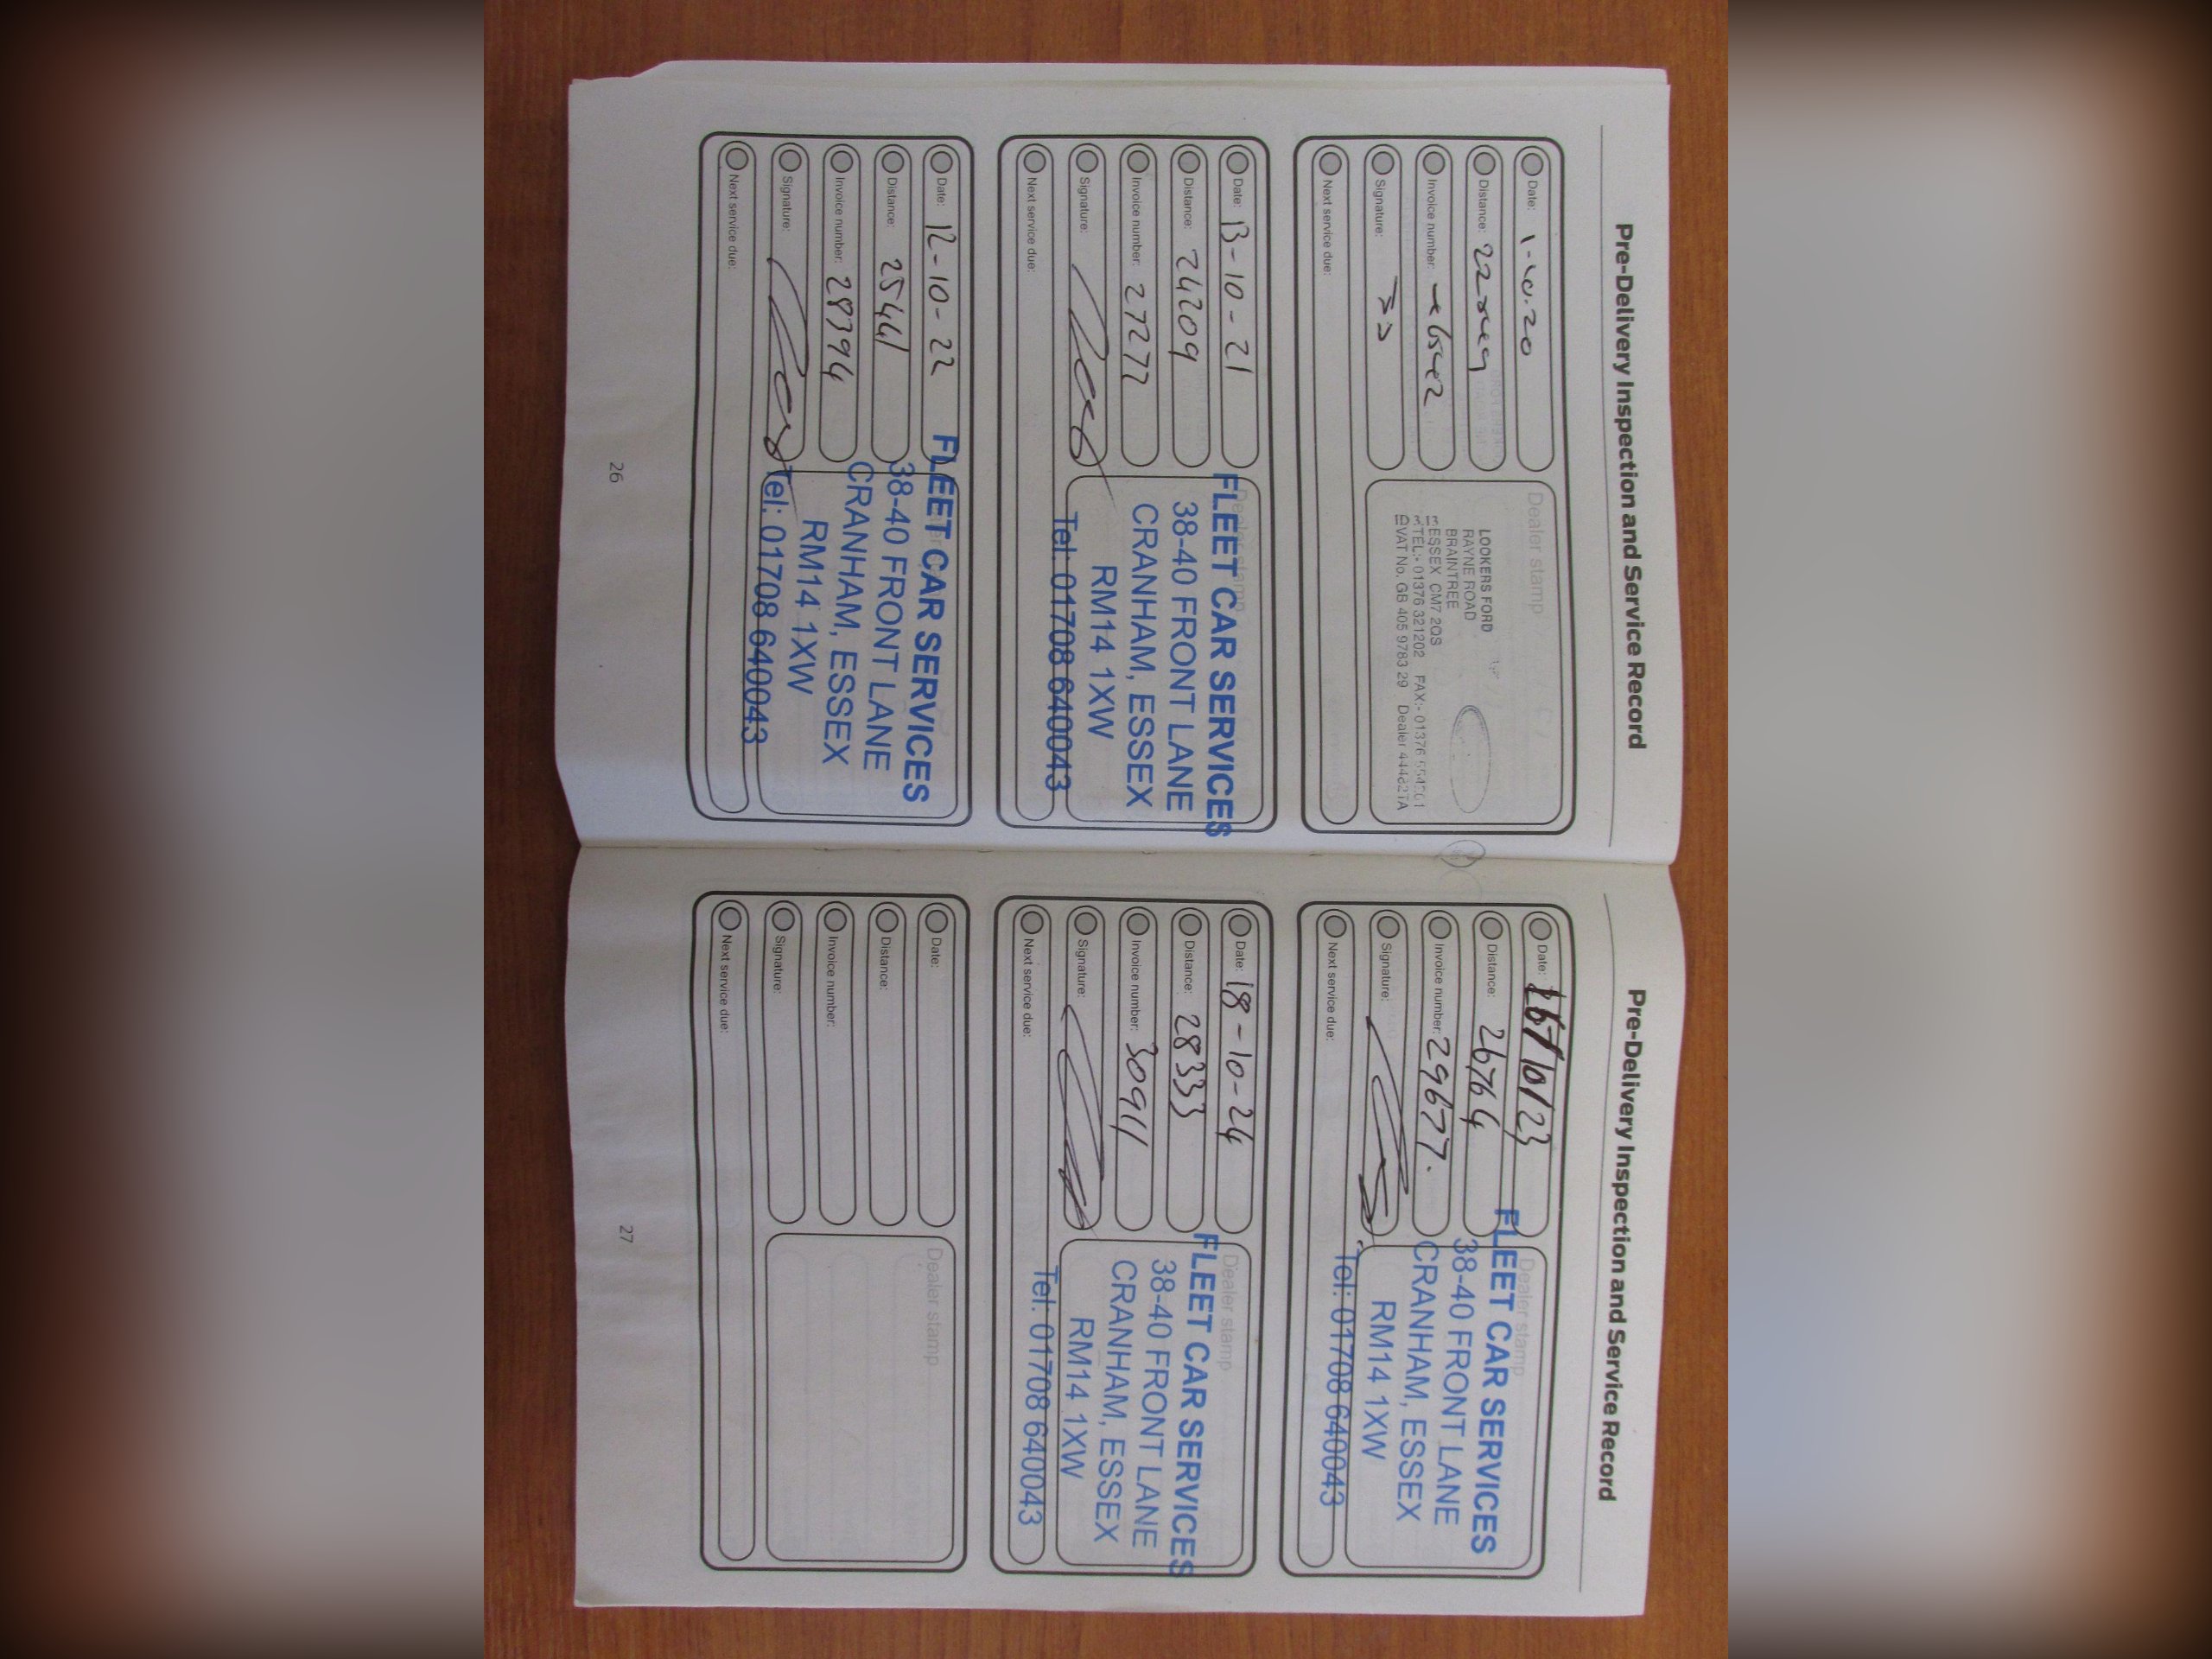 Pre-Delivery Inspection and Service Record
Date: 1-10.20
Distance:
Invoice number:
Signature:
Next service due:
Dealer stamp
LOOKERS FORD
RAYNE ROAD
BRAINTREE
ESSEX CM7 2QS
TEL:- 01376 321202 FAX:- 01376
VAT No. GB 405 9783 29 Dealer
Date: 13-10-21
Distance: 24209
Invoice number: 27277
Signature:
Next service due:
Dealer stamp
FLEET CAR SERVICES
38-40 FRONT LANE
CRANHAM, ESSEX
RM14 1XW
Tel: 01708 640043
Date: 12-10-22
Distance: 25441
Invoice number: 28394
Signature:
Next service due:
FLEET CAR SERVICES
38-40 FRONT LANE
CRANHAM, ESSEX
RM14 1XW
Tel: 01708 640043
26
Pre-Delivery Inspection and Service Record
Date: 26/10/23
Distance: 26764
Invoice number: 29677.
Signature:
Next service due:
Dealer stamp
FLEET CAR SERVICES
38-40 FRONT LANE
CRANHAM, ESSEX
RM14 1XW
Tel: 01708 640043
Date: 18-10-24
Distance: 28333
Invoice number: 30911
Signature:
Next service due:
Dealer stamp
FLEET CAR SERVICES
38-40 FRONT LANE
CRANHAM, ESSEX
RM14 1XW
Tel: 01708 640043
Date:
Distance:
Invoice number:
Signature:
Next service due:
Dealer stamp
27